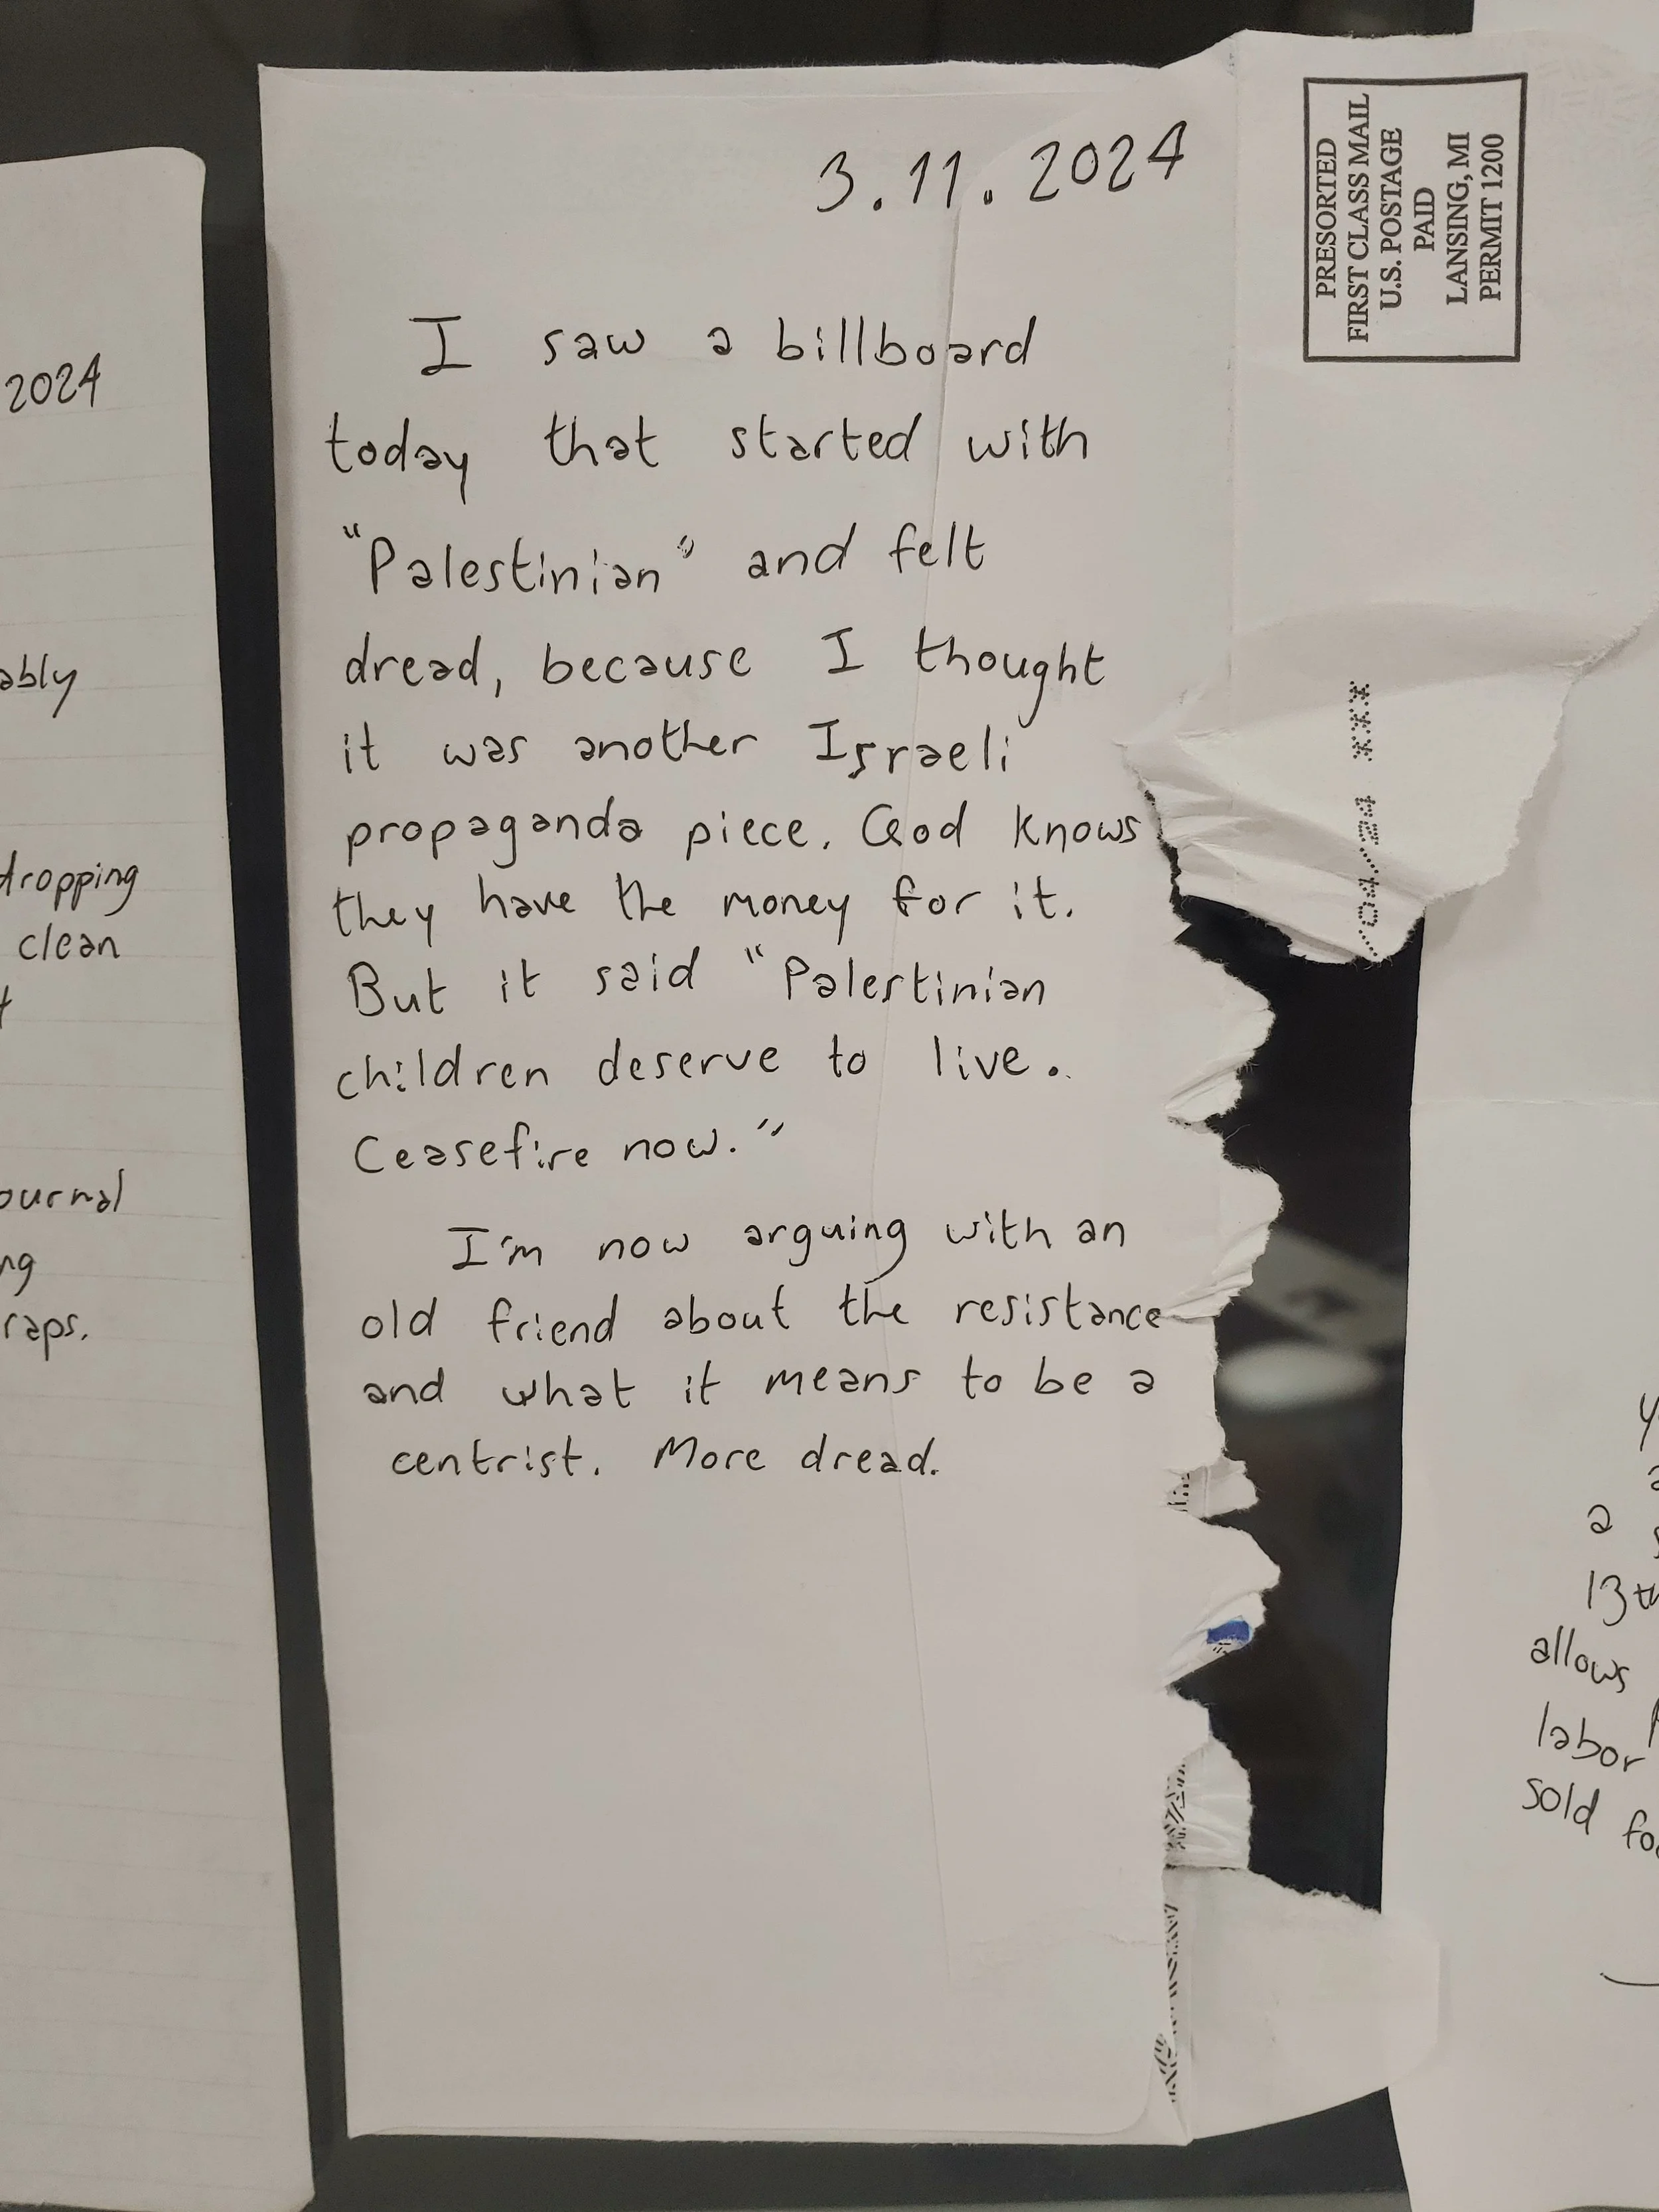 3.11.2024
I saw a billboard
today that started with
"Palestinian" and felt
dread, because I thought
it was another Israeli
propaganda piece. God knows
they have the money for it.
But it said "Palestinian
children deserve to live.
Ceasefire now."
I'm now arguing with an
old friend about the resistance
and what it means to be a
centrist. More dread.
PRESORTED
FIRST CLASS MAIL
U.S. POSTAGE
PAID
LANSING, MI
PERMIT 1200
/04/24 ***
2024
ably
dropping
clean
ournal
ng
raps.
a
13th
allows
labor
sold fo